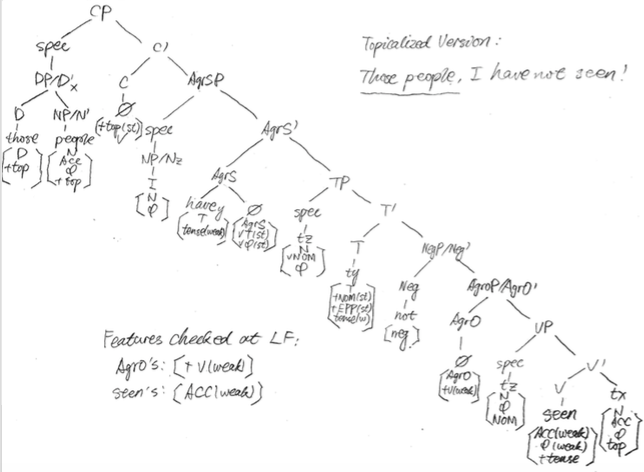 CP
spec C'
Topicalized Version:
Those people, I have not seen!
DP/D'x C AgrSP
D NP/N' Ø
those people [+top(st)] spec AgrS'
[D +top]
[N Acc φ +top]
NP/Nz AgrS TP
I
[N φ]
havey Ø spec T'
T
tense(weak)
[AgrS √T(st) +φ(st)]
tz
[N √NOM φ]
T NegP/Neg'
ty
[T +NOM(st) +EPP(st) tense(w)]
Neg AgroP/AgrO'
not
[neg]
AgrO VP
Ø
[AgrO +V(weak)]
spec V'
tz
[N φ NOM]
V tx
seen
[ACC(weak) φ(weak) +tense]
[N ACC φ top]
Features checked at LF:
AgrO's: [+V(weak)]
seen's: [ACC(weak)]